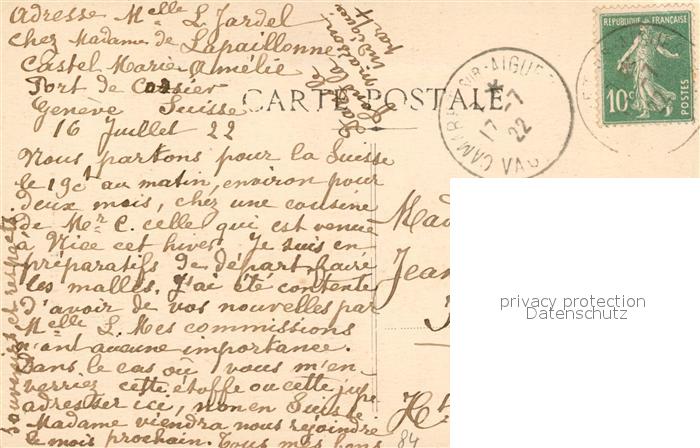 Adresse Melle L Jardel
chez Madame de Lapaillonne
Castel Marie Amélie
Port de
Genève Suisse
16 Juillet 22
Nous partons pour la Suisse
le 19ct au matin, environ pour
deux mois, chez une cousine
de Mer C. celle qui est venue
à Nice cet hiver. Je suis en
préparatifs de départ, faire
les malles. J'ai été contente
d'avoir de vos nouvelles par
Melle L. Mes commissions
n'ont aucune importance.
Dans le cas où vous m'en
verriez cette étoffe ou cette jupe
adresser ici, non en Suisse
Madame viendra nous rejoindre
le mois prochain. Tous mes bons
souvenirs et respects
maison
indique
part
CARTE POSTALE
CAMARET-SUR-AIGUES
17 -7
22
VAUC
RÉPUBLIQUE FRANÇAISE
10c
POSTES
Mad
Jean
Ht
84
privacy protection
Datenschutz